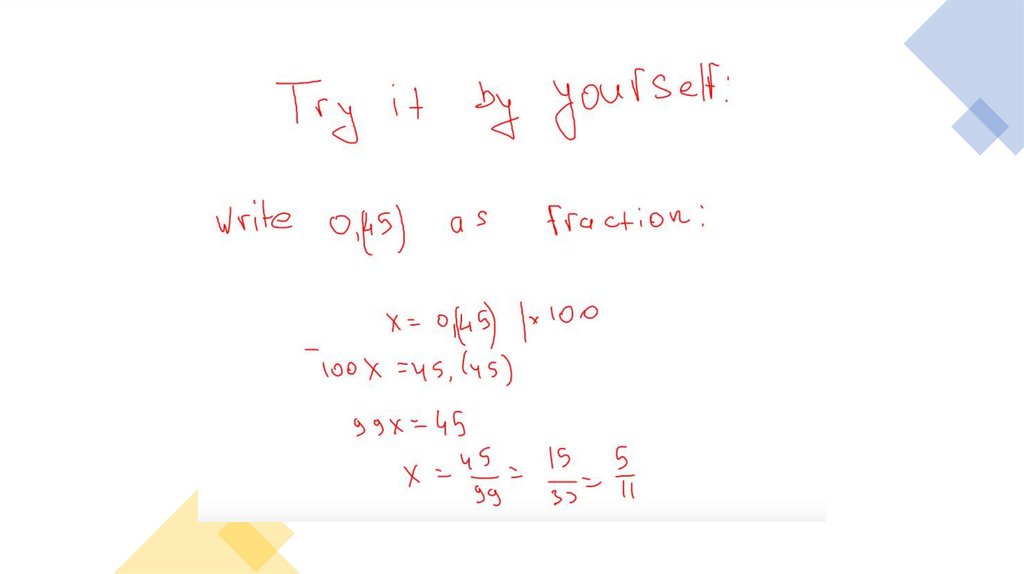 Try it by yourself:
write 0,(45) as fraction:
x = 0,(45) |× 100
- 100x = 45,(45)
99x = 45
x = 45/99 = 15/33 = 5/11